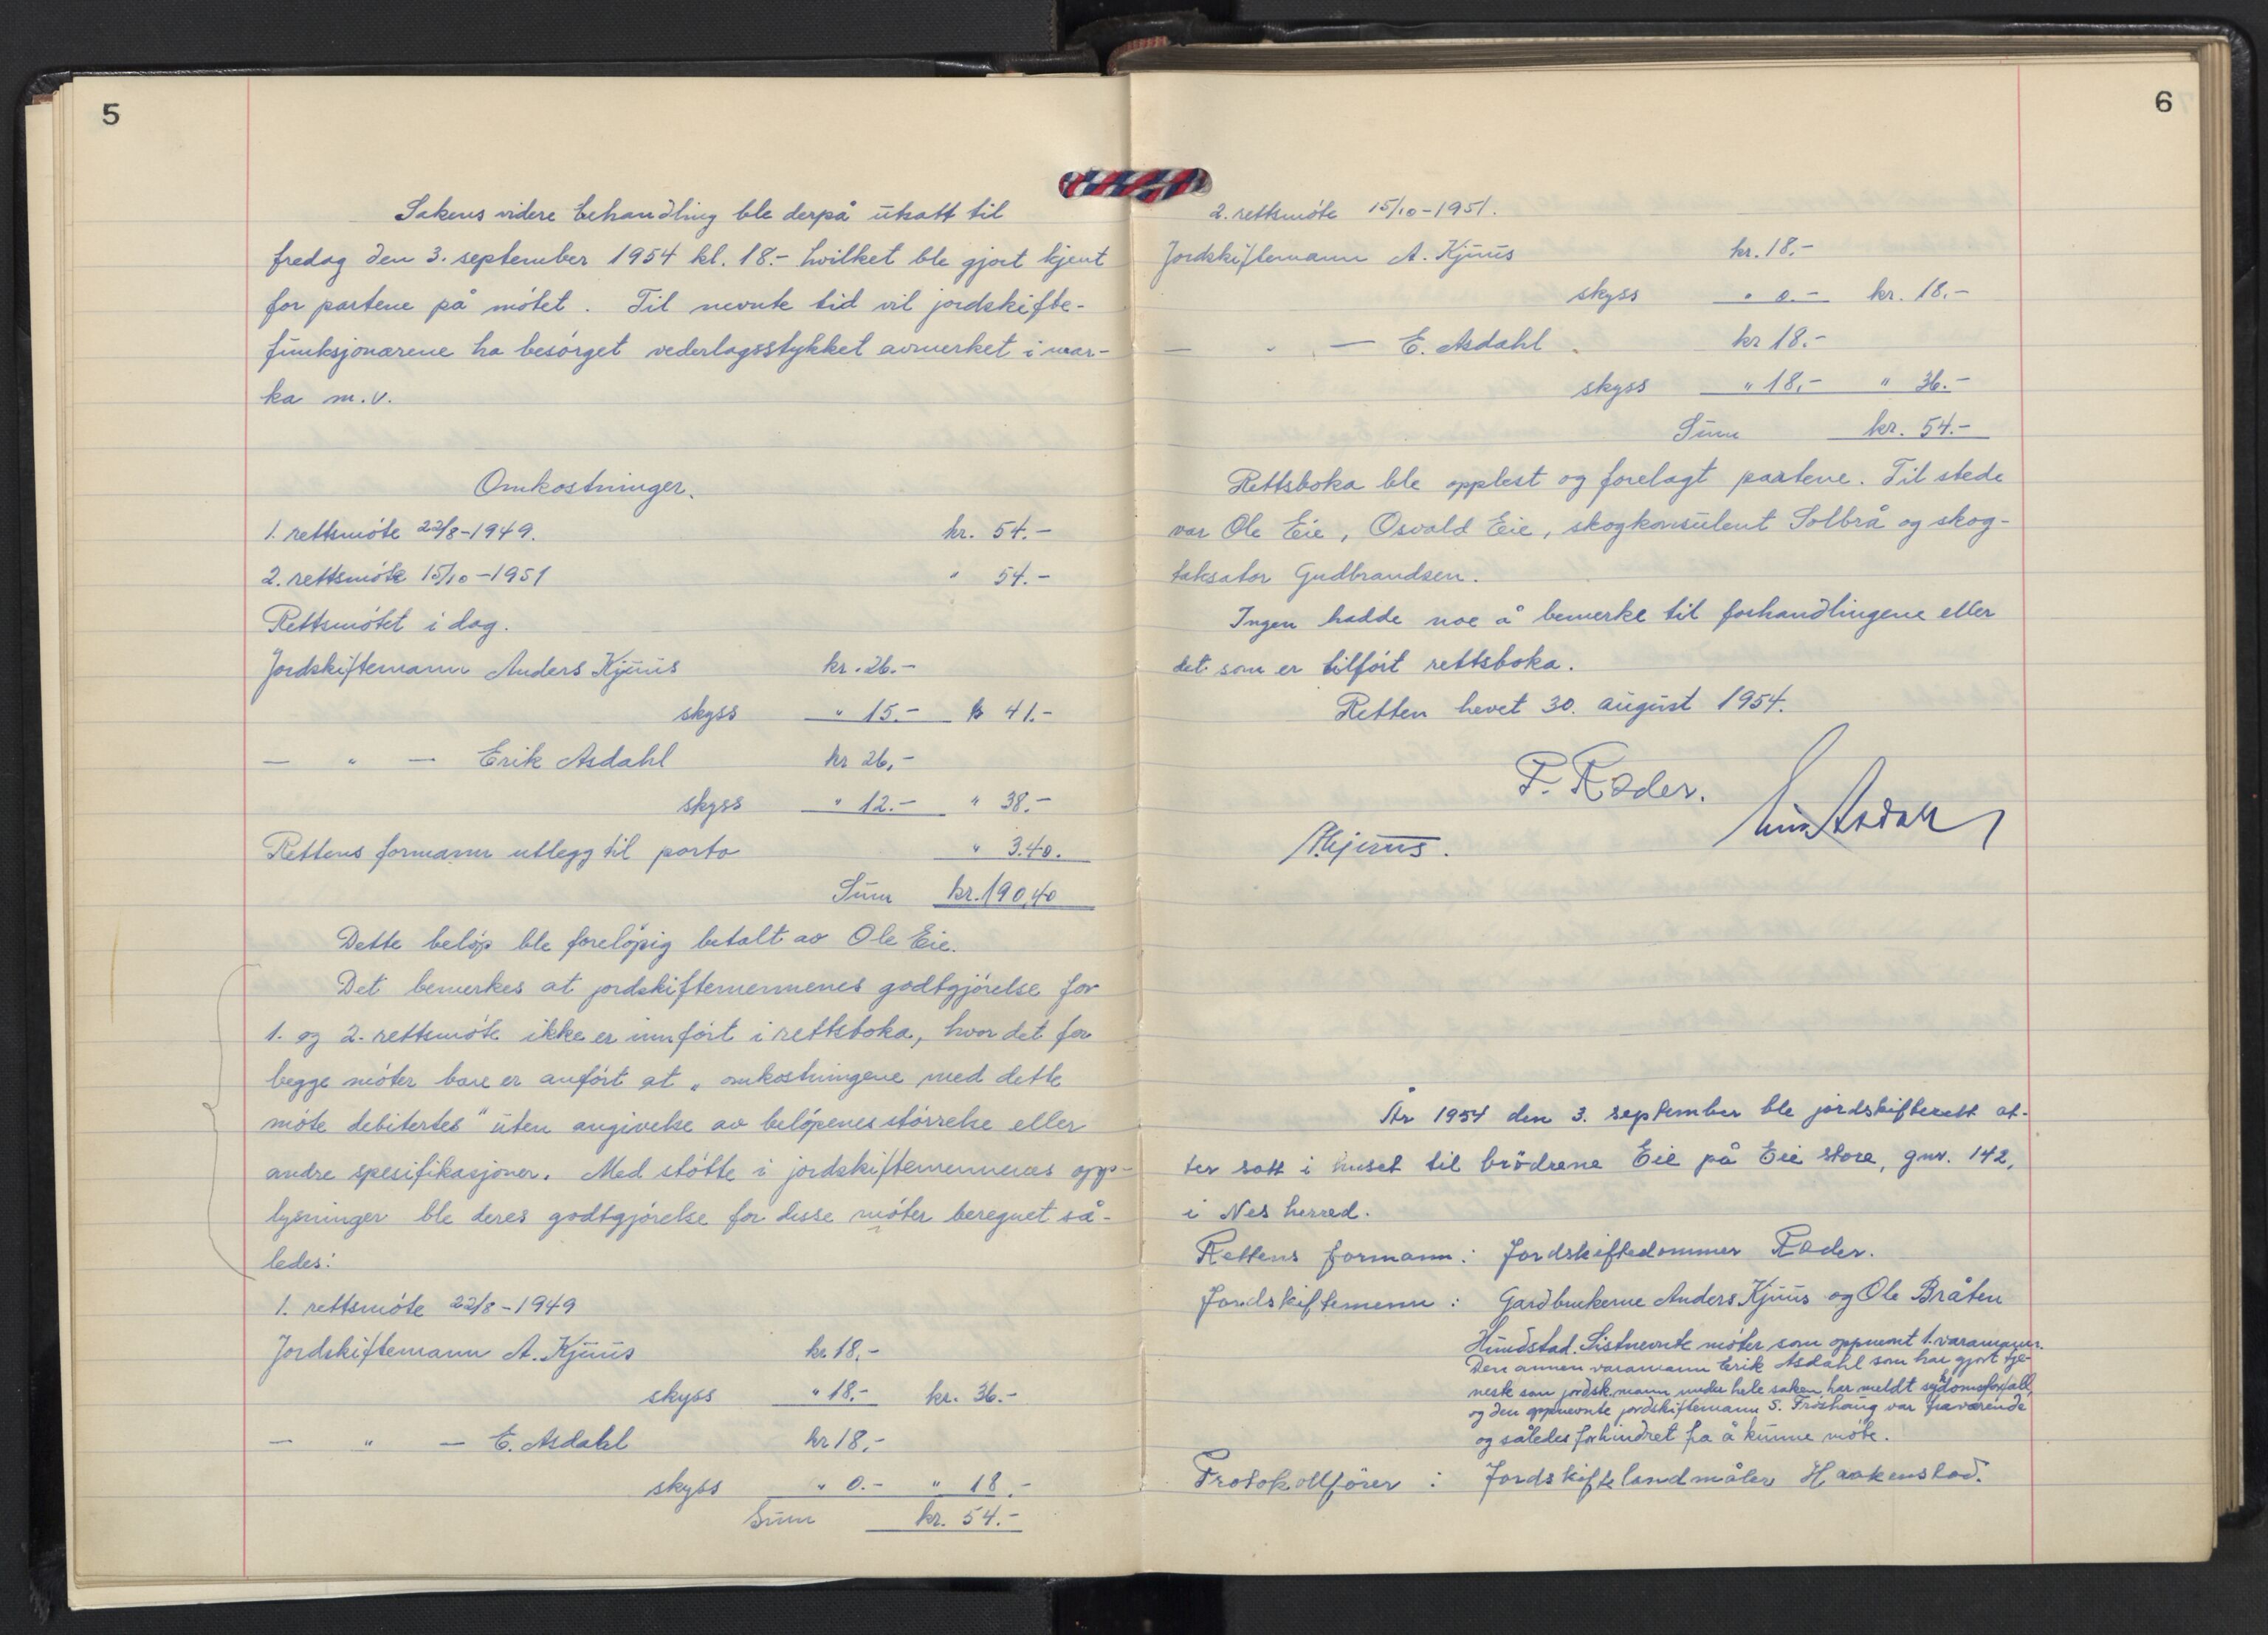 5
Sakens videre behandling ble derpå utsatt til
fredag den 3. september 1954 kl. 18.- hvilket ble gjort kjent
for partene på møtet. Til nevnte tid vil jordskifte-
funksjonærene ha besørget vederlagsstykket avmerket i mar-
ka m.v.
Omkostninger.
1. rettsmøte 22/8-1949. kr. 54.-
2. rettsmöte 15/10-1951 " 54.-
Rettsmøtet i dag.
Jordskiftemann Anders Kjuus kr. 26.-
skyss " 15.- kr 41.-
— " — Erik Asdahl kr 26,-
skyss " 12.- " 38.-
Rettens formann utlegg til porto " 3.40.
Sum kr. 190,40
Dette beløp ble foreløpig betalt av Ole Eie.
Det bemerkes at jordskiftemennenes godtgjørelse for
1. og 2. rettsmøte ikke er innført i rettsboka, hvor det for
begge møter bare er anført at „omkostningene med dette
møte debitertes" uten angivelse av beløpenes størrelse eller
andre spesifikasjoner. Med støtte i jordskiftemennenes opp-
lysninger ble deres godtgjørelse for disse møter beregnet så-
ledes:
1. rettsmøte 22/8-1949
Jordskiftemann A. Kjuus kr. 18,-
skyss " 18.- kr. 36.-
— " — E. Asdahl kr 18,-
skyss " 0.- " 18.-
Sum kr. 54.-
6
2. rettsmøte 15/10-1951.
Jordskiftemann A. Kjuus kr. 18.-
skyss " 0.- kr. 18.-
— " — E. Asdahl. kr 18.-
skyss " 18,- " 36.-
Sum kr. 54.-
Rettsboka ble opplest og forelagt partene. Til stede
var Ole Eie, Osvald Eie, skogkonsulent Solbrå og skog-
taksator Gudbrandsen.
Ingen hadde noe å bemerke til forhandlingene eller
det som er tilført rettsboka.
Retten hevet 30. august 1954.
F. Ræder.
Erik Asdahl
A Kjuus.
År 1954 den 3. september ble jordskifterett at-
ter satt i huset til brödrene Eie på Eie store, gnr. 142,
i Nes herred.
Rettens formann: Jordskiftedommer Ræder.
Jordskiftemenn: Gardbrukerne Anders Kjuus og Ole Bråten
Hundstad. Sistnevnte møter som oppnevnt 1. varamann.
Den annen varamann Erik Asdahl som har gjort tje-
neste som jordsk.mann under hele saken, har meldt sykdomsforfall,
og den oppnevnte jordskiftemann S. Frøshaug var fraværende
og således forhindret fra å kunne møte.
Protokollfører: Jordskiftelandmåler Haakenstad.